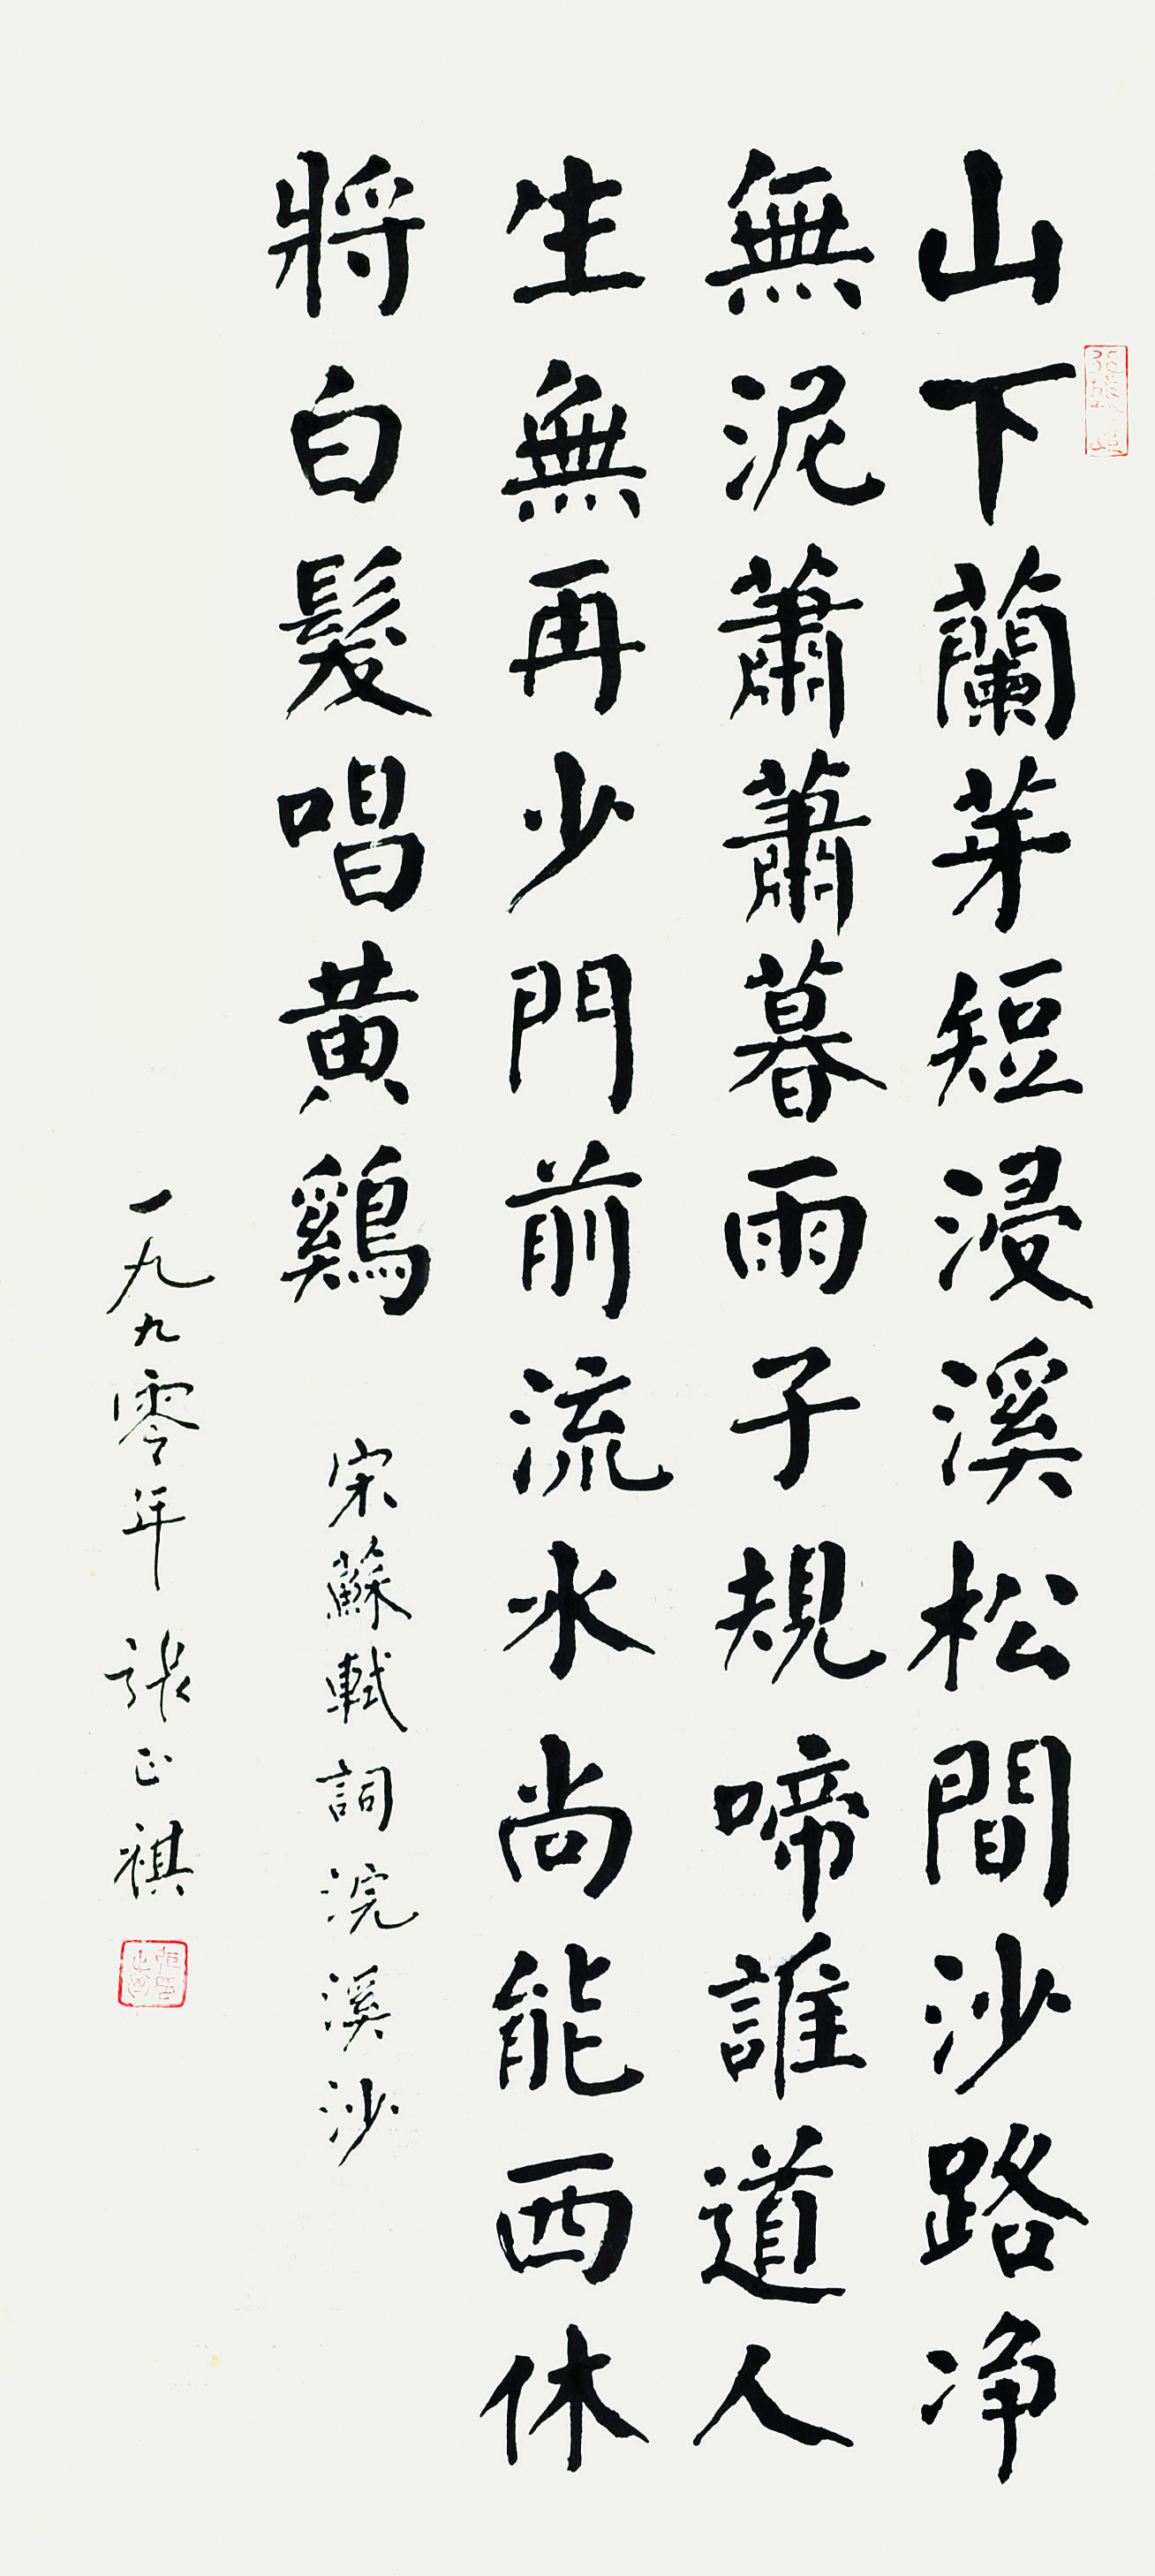 山下蘭芽短浸溪松間沙路净
無泥蕭蕭暮雨子規啼誰道人
生無再少門前流水尚能西休
將白髮唱黄鷄
宋蘇軾詞浣溪沙
一九九零年張正祺